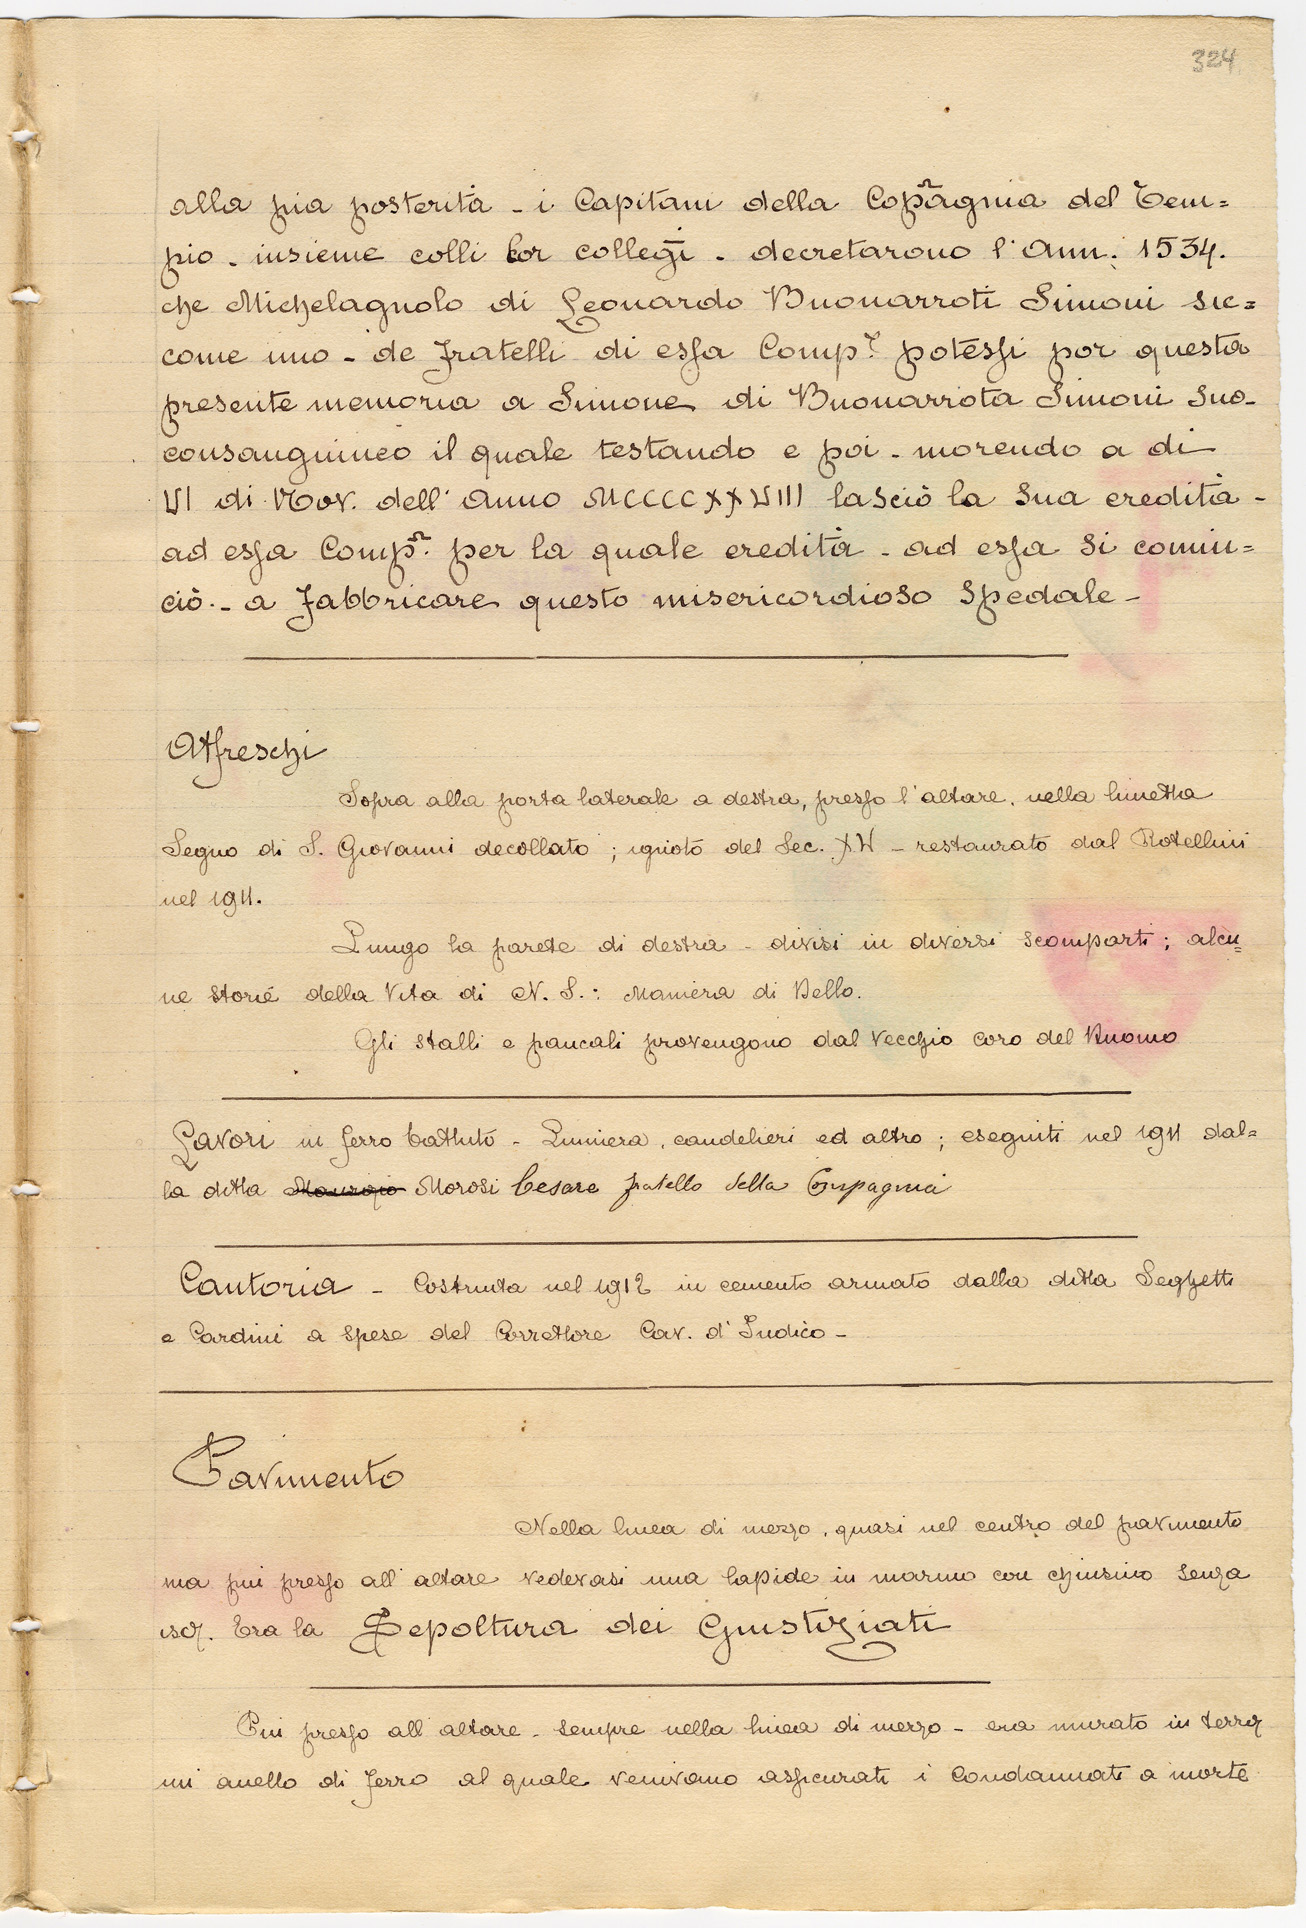 324
alla pia posterità - i Capitani della Copagnia del Tem=
pio - insieme colli lor collegi - decretarono l'Ann. 1534.
che Michelagnolo di Leonardo Buonarroti Simoni sic=
come uno - de fratelli di essa Comp.ª potessi por questa
presente memoria a Simone di Buonarrota Simoni suo-
consanguineo il quale testando e poi - morendo a di
VI di Nov. dell'Anno MCCCCXXVIII lasciò la sua eredità -
ad essa Comp.ª per la quale eredità - ad essa si comin=
ciò - a fabbricare questo misericordioso spedale -
Affreschi
Sopra alla porta laterale a destra, presso l'altare, nella lunetta
Segno di S. Giovanni decollato; ignoto del Sec. XV - restaurato dal Rotellini
nel 1911.
Lungo la parete di destra - divisi in diversi scomparti; alcu=
ne storie della Vita di N. S.: Maniera di Bello.
Gli stalli e pancali provengono dal vecchio coro del Duomo
Lavori in ferro battuto - Lumiera, candelieri ed altro; eseguiti nel 1911 dal=
la ditta Morosi Cesare fratello della Compagnia
Cantoria - Costruita nel 1912 in cemento armato dalla ditta Seghetti
e Cardini a spese del Correttore Cav. d'Indico -
Pavimento
Nella linea di mezzo, quasi nel centro del pavimento
ma più presso all'altare vedevasi una lapide in marmo con chiusino senza
iscz. Era la Sepoltura dei Giustiziati
Più presso all'altare - sempre nella linea di mezzo - era murato in terra
un anello di ferro al quale venivano assicurati i Condannati a morte